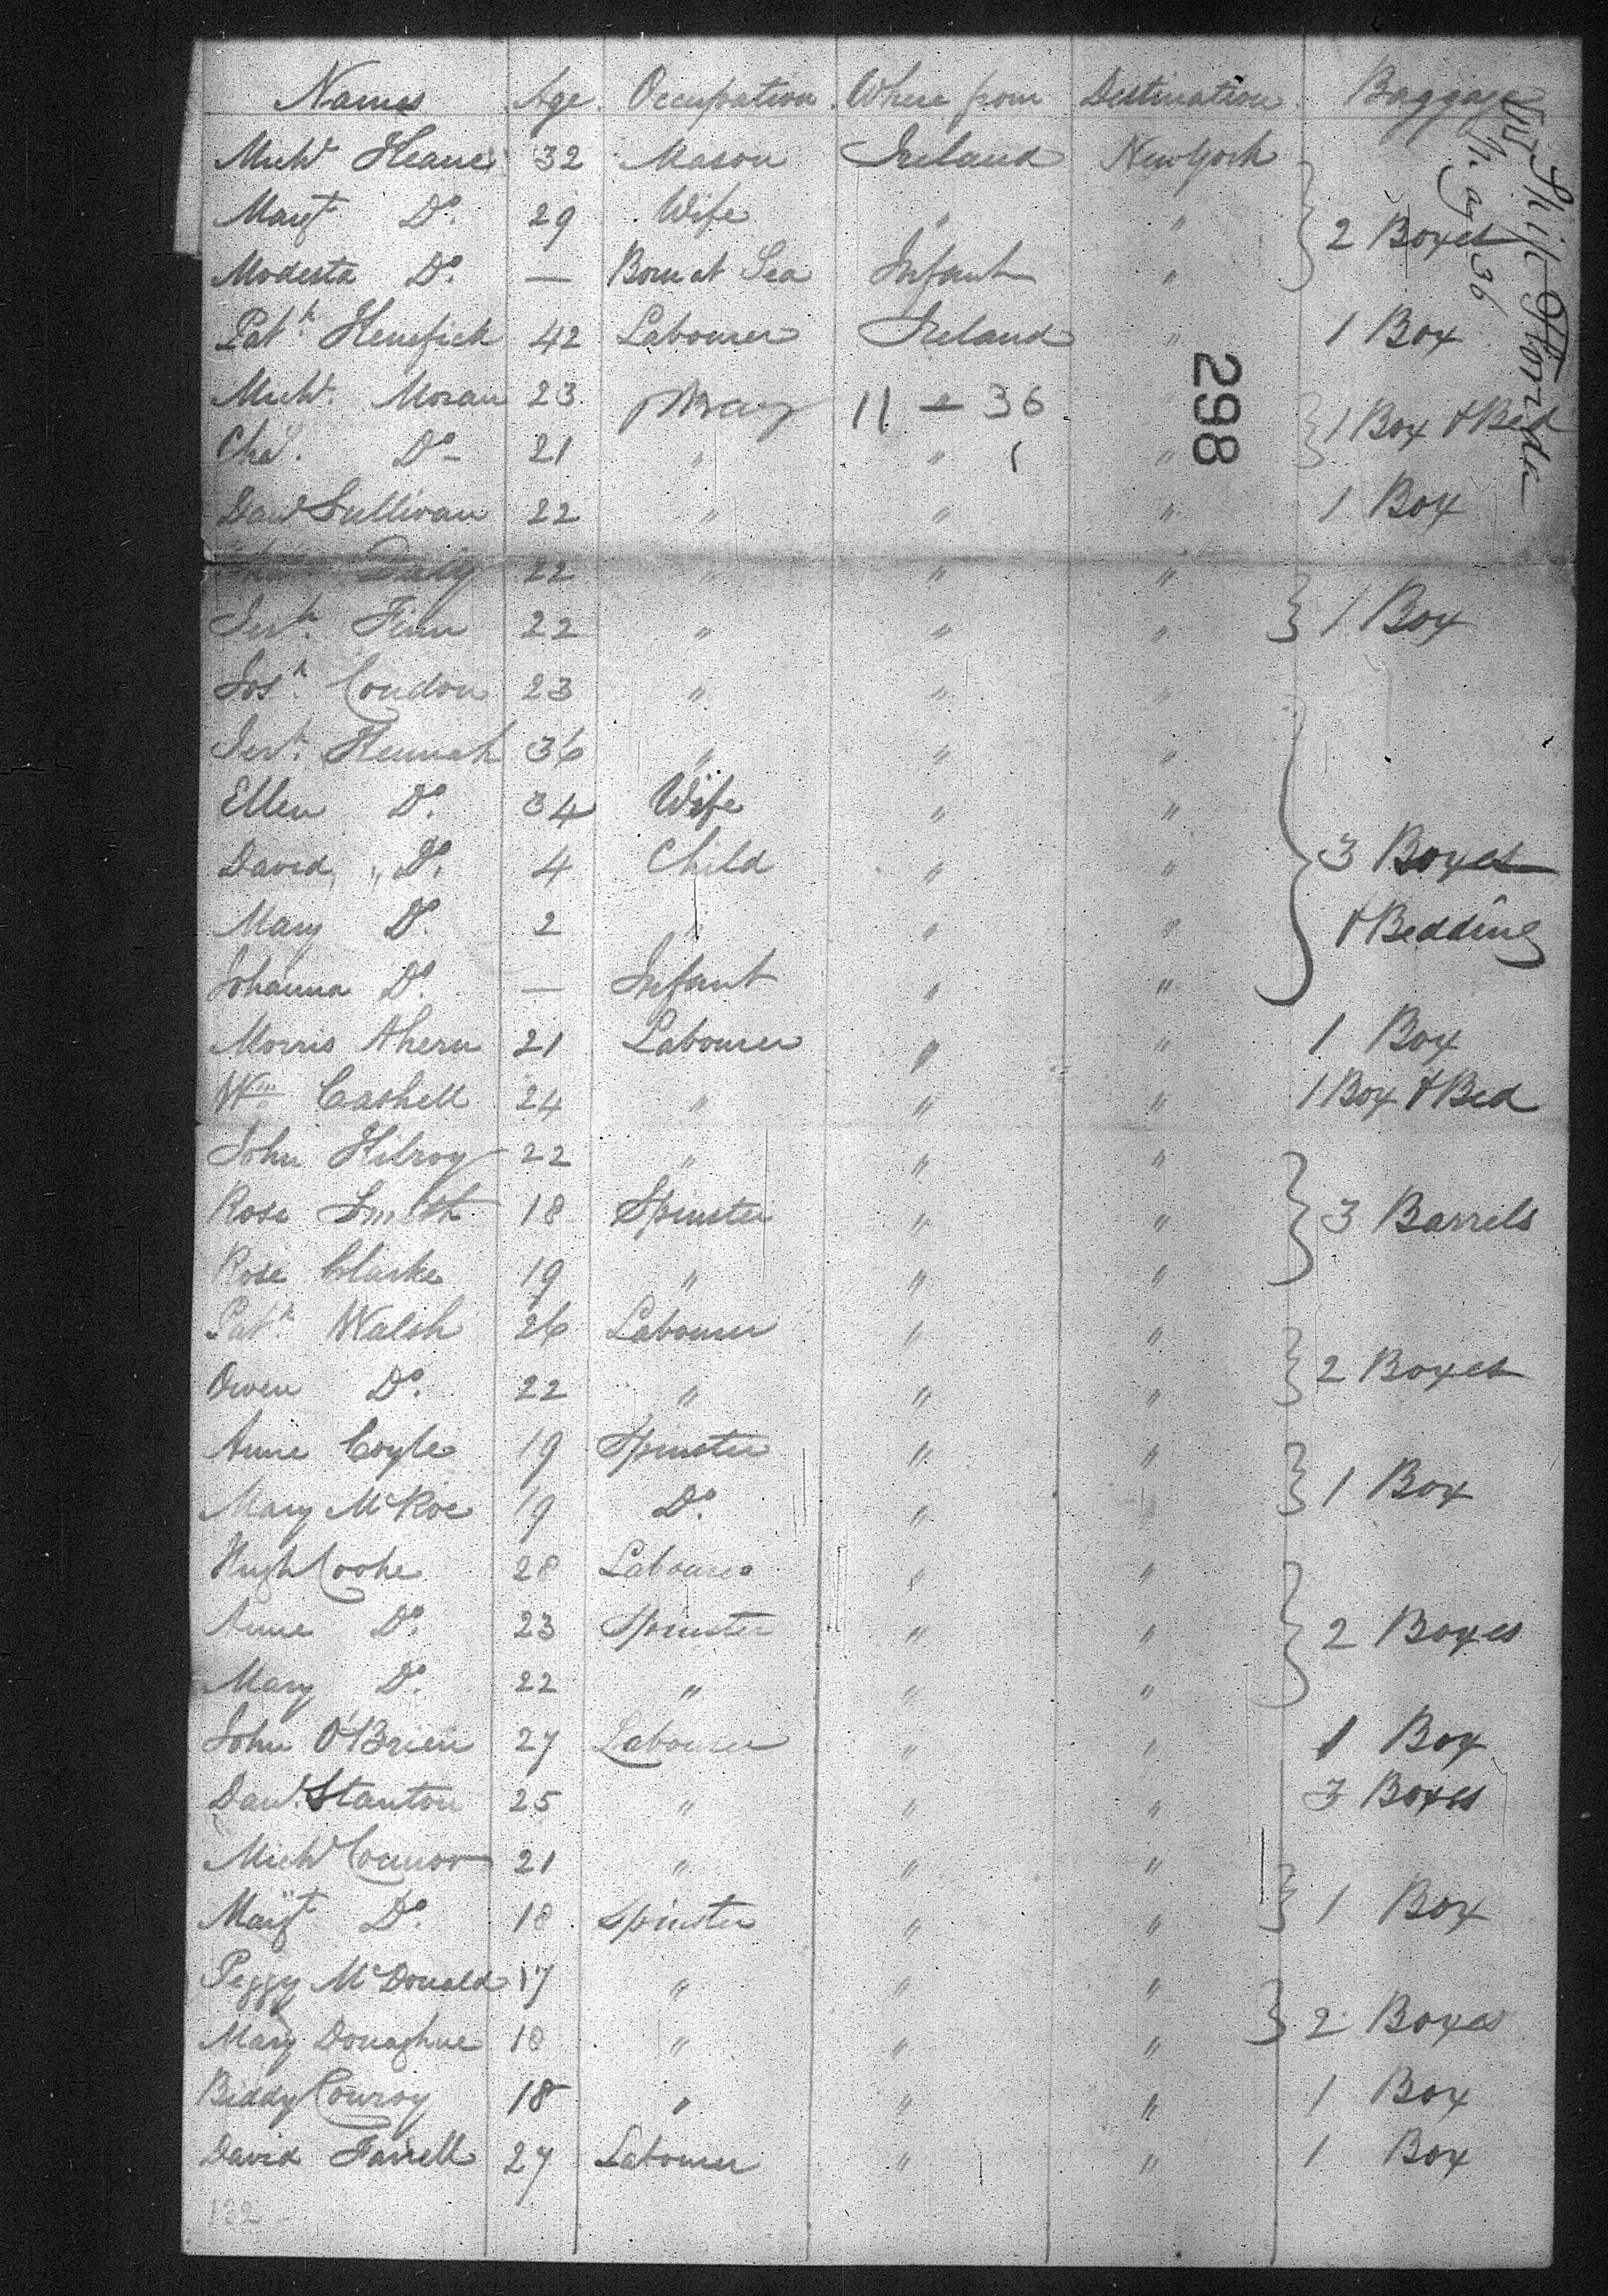 Names Age Occupation Where from Destination Baggage
Michl Heane 32 Mason Ireland New York
Margt Do. 29 Wife " " 2 Boxes
Modesta Do. — Born at Sea Infant "
Patk. Henefick 42 Labourer Ireland " 1 Box
Michl. Moran 23 May 11 - 36 " 1 Box & Bed
Chas. Do - 21 " " "
Davd Sullivan 22 " " " 1 Box
Daly 22 " " "
Jerh. Finn 22 " " " 1 Box
Josh. Condon 23 " " "
Jerh. Hennah 36 " " "
Ellen Do. 34 Wife " "
David Do. 4 Child " " 3 Boxes
Mary Do. 2 " " " & Bedding
Johanna Do. — Infant " "
Morris Ahern 21 Labourer " " 1 Box
Wm Cashell 24 " " " 1 Box & Bed
John Kilroy 22 " " "
Rose Smith 18 Spinster " " 3 Barrels
Rose Clarke 19 " " "
Patk. Walsh 26 Labourer " "
Owen Do. 22 " " " 2 Boxes
Anne Coyle 19 Spinster " "
Mary McRoe 19 Do. " " 1 Box
Hugh Cooke 28 Labourer " "
Anne Do. 23 Spinster " " 2 Boxes
Mary Do. 22 " " "
John O'Brien 27 Labourer " " 1 Box
Davd. Stanton 25 " " " 3 Boxes
Michl Connor 21 " " "
Margt Do. 18 Spinster " " 1 Box
Peggy McDonald 17 " " "
Mary Donaghue 18 " " " 2 Boxes
Biddy Conroy 18 " " " 1 Box
David Farrell 27 Labourer " " 1 Box
132
298
Ship Florida